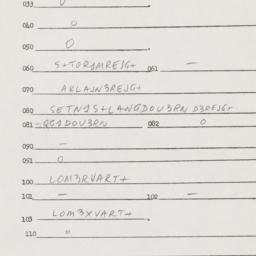 033 0
040 0
050 0
060 S+TOR1MREJG+ 061 —
070 ARLAJN3REJG+
080 SETN1S+LANGDOU3RN D3REJG+
081 -QG1DOU3RN 082 0
090 —
091 0
100 LOM3RVART+
101 — 102 —
103 LOM3XVART+
110 0